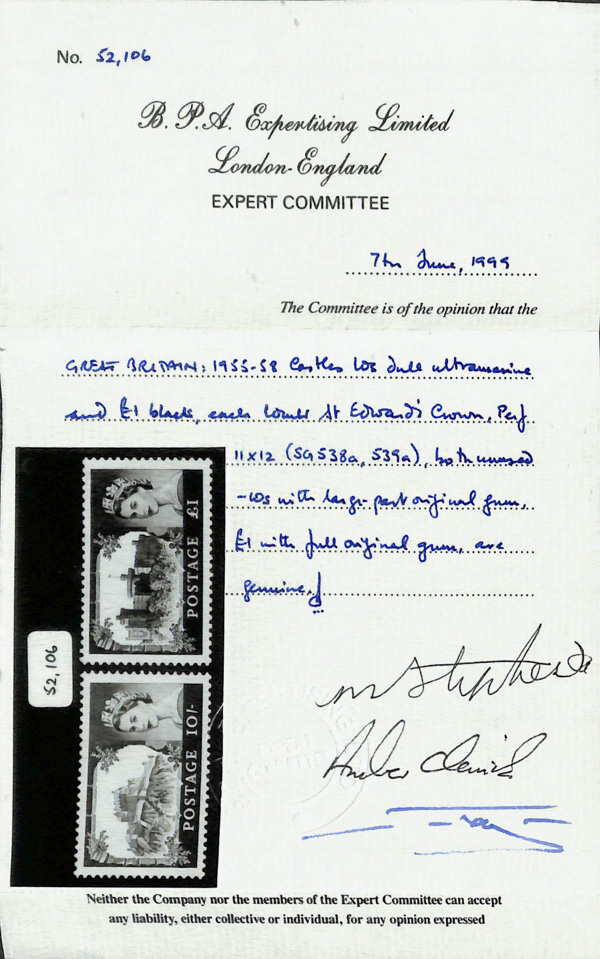 No. 52,106
B. P.A. Expertising Limited
London-England
EXPERT COMMITTEE
7th June, 1999
The Committee is of the opinion that the
GREAT BRITAIN: 1955-58 Castles 10s dull ultramarine
and £1 black, each wmk St Edward's Crown, Perf
11x12 (SG538a, 539a), both unused
-10s with large part original gum,
£1 with full original gum, are
genuine.
POSTAGE £1
52,106
POSTAGE 10/-
Neither the Company nor the members of the Expert Committee can accept
any liability, either collective or individual, for any opinion expressed